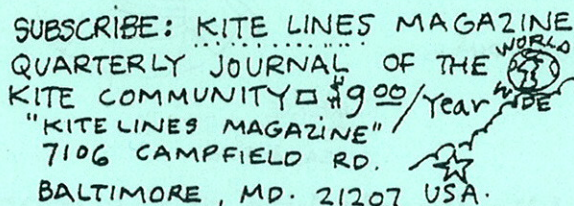 SUBSCRIBE: KITE LINES MAGAZINE
QUARTERLY JOURNAL OF THE WORLD WIDE
KITE COMMUNITY □ $9 00/Year
"KITE LINES MAGAZINE"
7106 CAMPFIELD RD.
BALTIMORE, MD. 21207 USA.